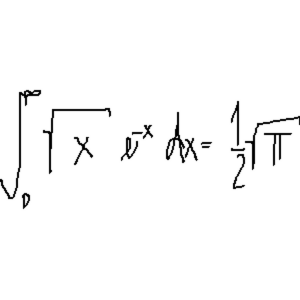 ∫₀^∞ √x e^{-x} dx = ½√π